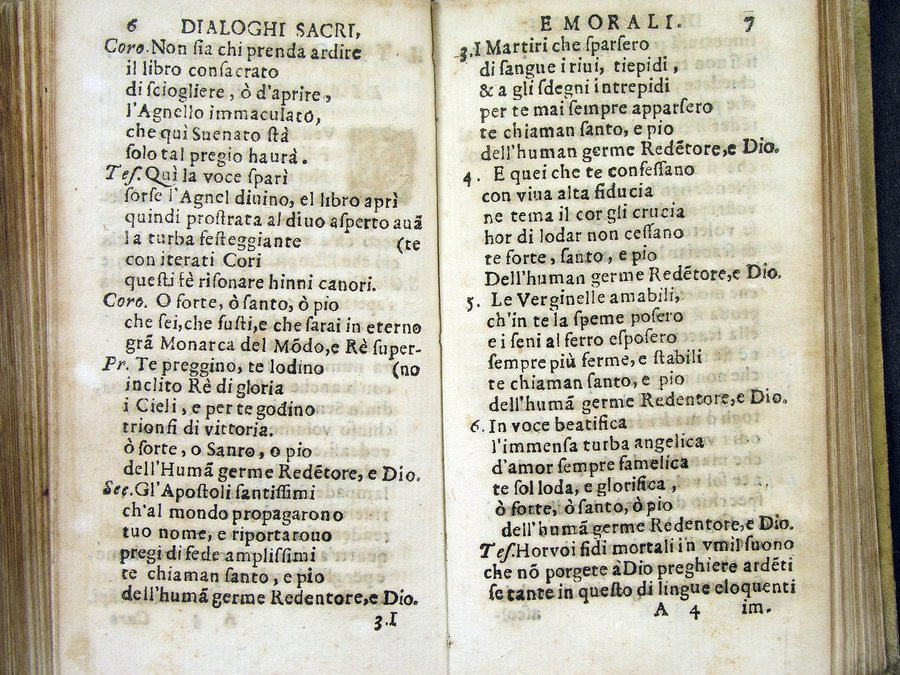 6 DIALOGHI SACRI,
Coro. Non sia chi prenda ardire
il libro consacrato
di sciogliere, ò d'aprire,
l'Agnello immaculato,
che quì Suenato stà
solo tal pregio haurà.
Tes. Quì la voce sparì
sorse l'Agnel diuino, el libro aprì
quindi prostrata al diuo asperto auã
la turba festeggiante (te
con iterati Cori
questi fè risonare hinni canori.
Coro. O forte, ò santo, ò pio
che sei, che fusti, e che sarai in eterno
grã Monarca del Mõdo, e Rè super-
Pr. Te preggino, te lodino (no
inclito Rè di gloria
i Cieli, e per te godino
trionfi di vittoria.
ò forte, o Santo, o pio
dell'Humã germe Redẽtore, e Dio.
Sec. Gl'Apostoli santissimi
ch'al mondo propagarono
tuo nome, e riportarouo
pregi di fede amplissimi
te chiaman santo, e pio
dell'humã germe Redentore, e Dio.
3. I
E MORALI. 7
3. I Martiri che sparsero
di sangue i riui, tiepidi,
& a gli sdegni intrepidi
per te mai sempre apparsero
te chiaman santo, e pio
dell'human germe Redẽtore, e Dio.
4. E quei che te confessano
con viua alta fiducia
ne tema il cor gli crucia
hor di lodar non cessano
te forte, santo, e pio
Dell'human germe Redẽtore, e Dio.
5. Le Verginelle amabili,
ch'in te la speme posero
e i seni al ferro esposero
sempre più ferme, e stabili
te chiaman santo, e pio
dell'humã germe Redentore, e Dio.
6. In voce beatifica
l'immensa turba angelica
d'amor sempre famelica
te sol loda, e glorifica,
ò forte, ò santo, ò pio
dell'humã germe Redentore, e Dio.
Tes. Hor voi fidi mortali in vmil suono
che nõ porgete à Dio preghiere ardẽti
se tante in questo di lingue eloquenti
A 4 im.